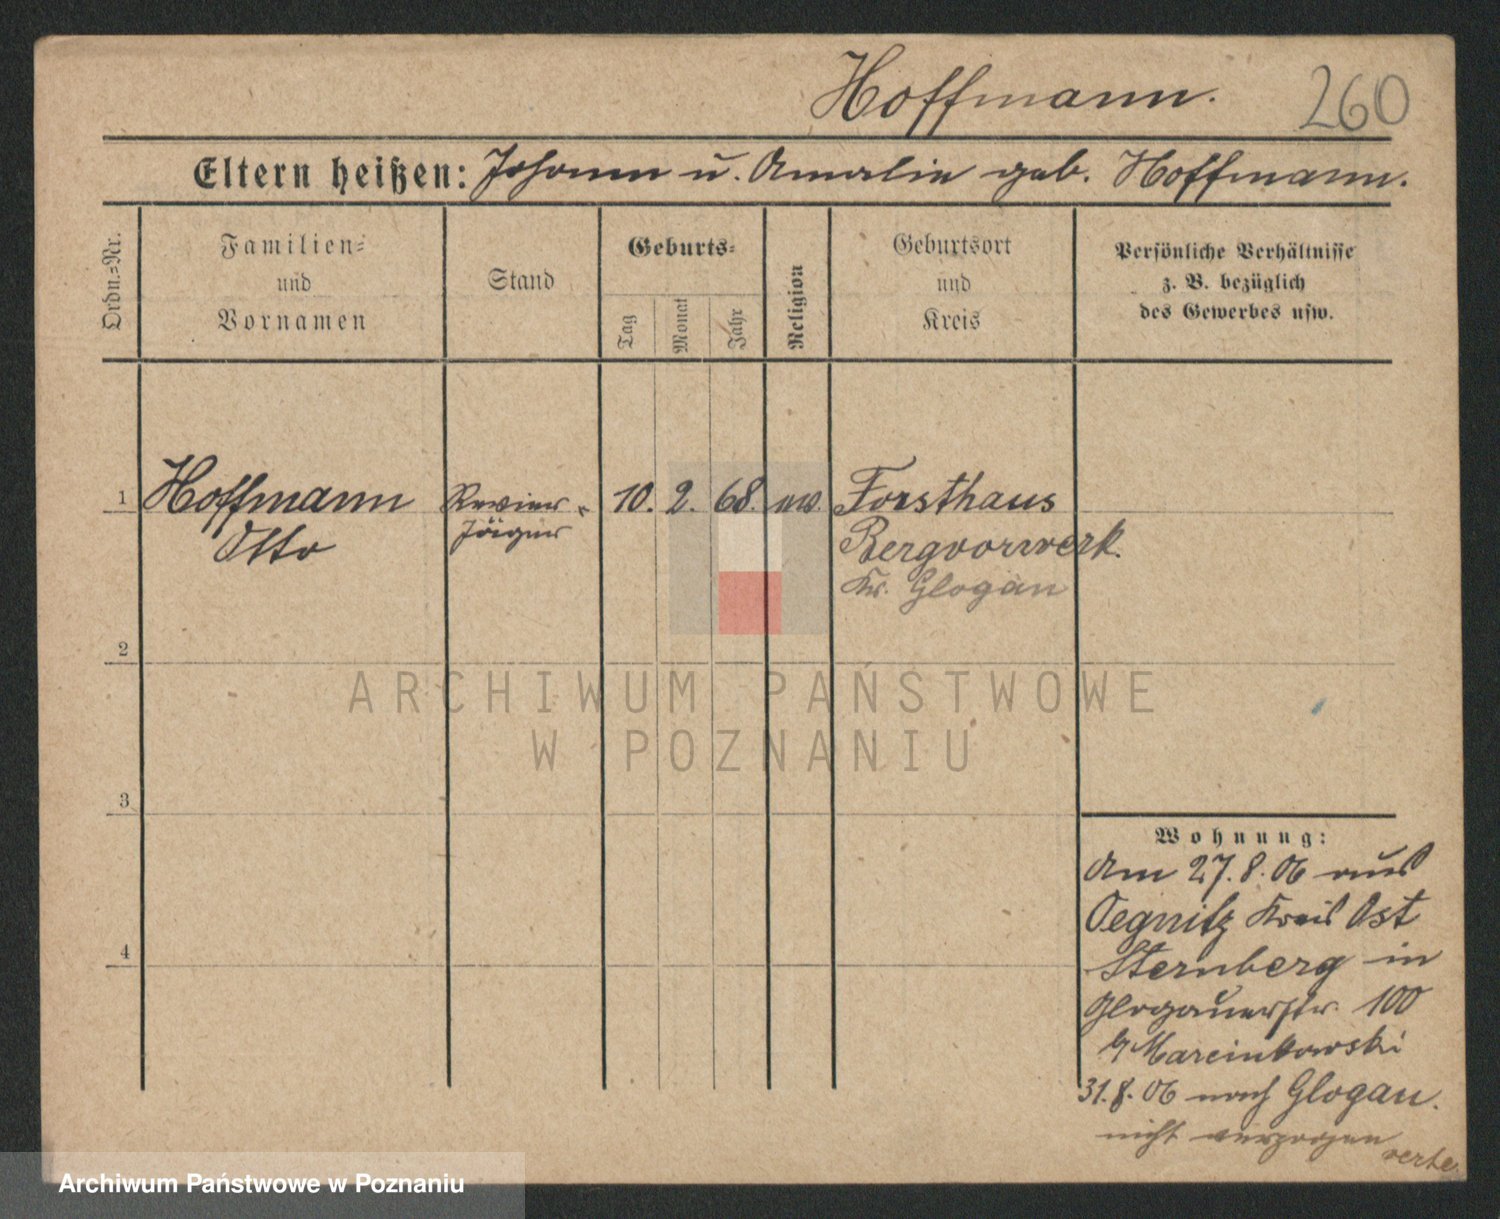 Hoffmann.
260
Eltern heißen: Johann u. Amalie geb. Hoffmann.
Ordn.=Nr.
Familien=
und
Vornamen
Stand
Geburts=
Tag
Monat
Jahr
Religion
Geburtsort
und
Kreis
Persönliche Verhältnisse
z. B. bezüglich
des Gewerbes usw.
1
Hoffmann
Otto
Revier-
Jäger
10. 2. 68. ev.
Forsthaus
Bergvorwerk.
Kr. Glogau
2
3
4
ARCHIWUM PAŃSTWOWE
W POZNANIU
Wohnung:
Am 27.8.06 aus
Oegnitz Kreis Ost
Sternberg in
Glogauerstr. 100
b/ Marcinkowski
31.8.06 nach Glogau.
nicht verzogen
Archiwum Państwowe w Poznaniu